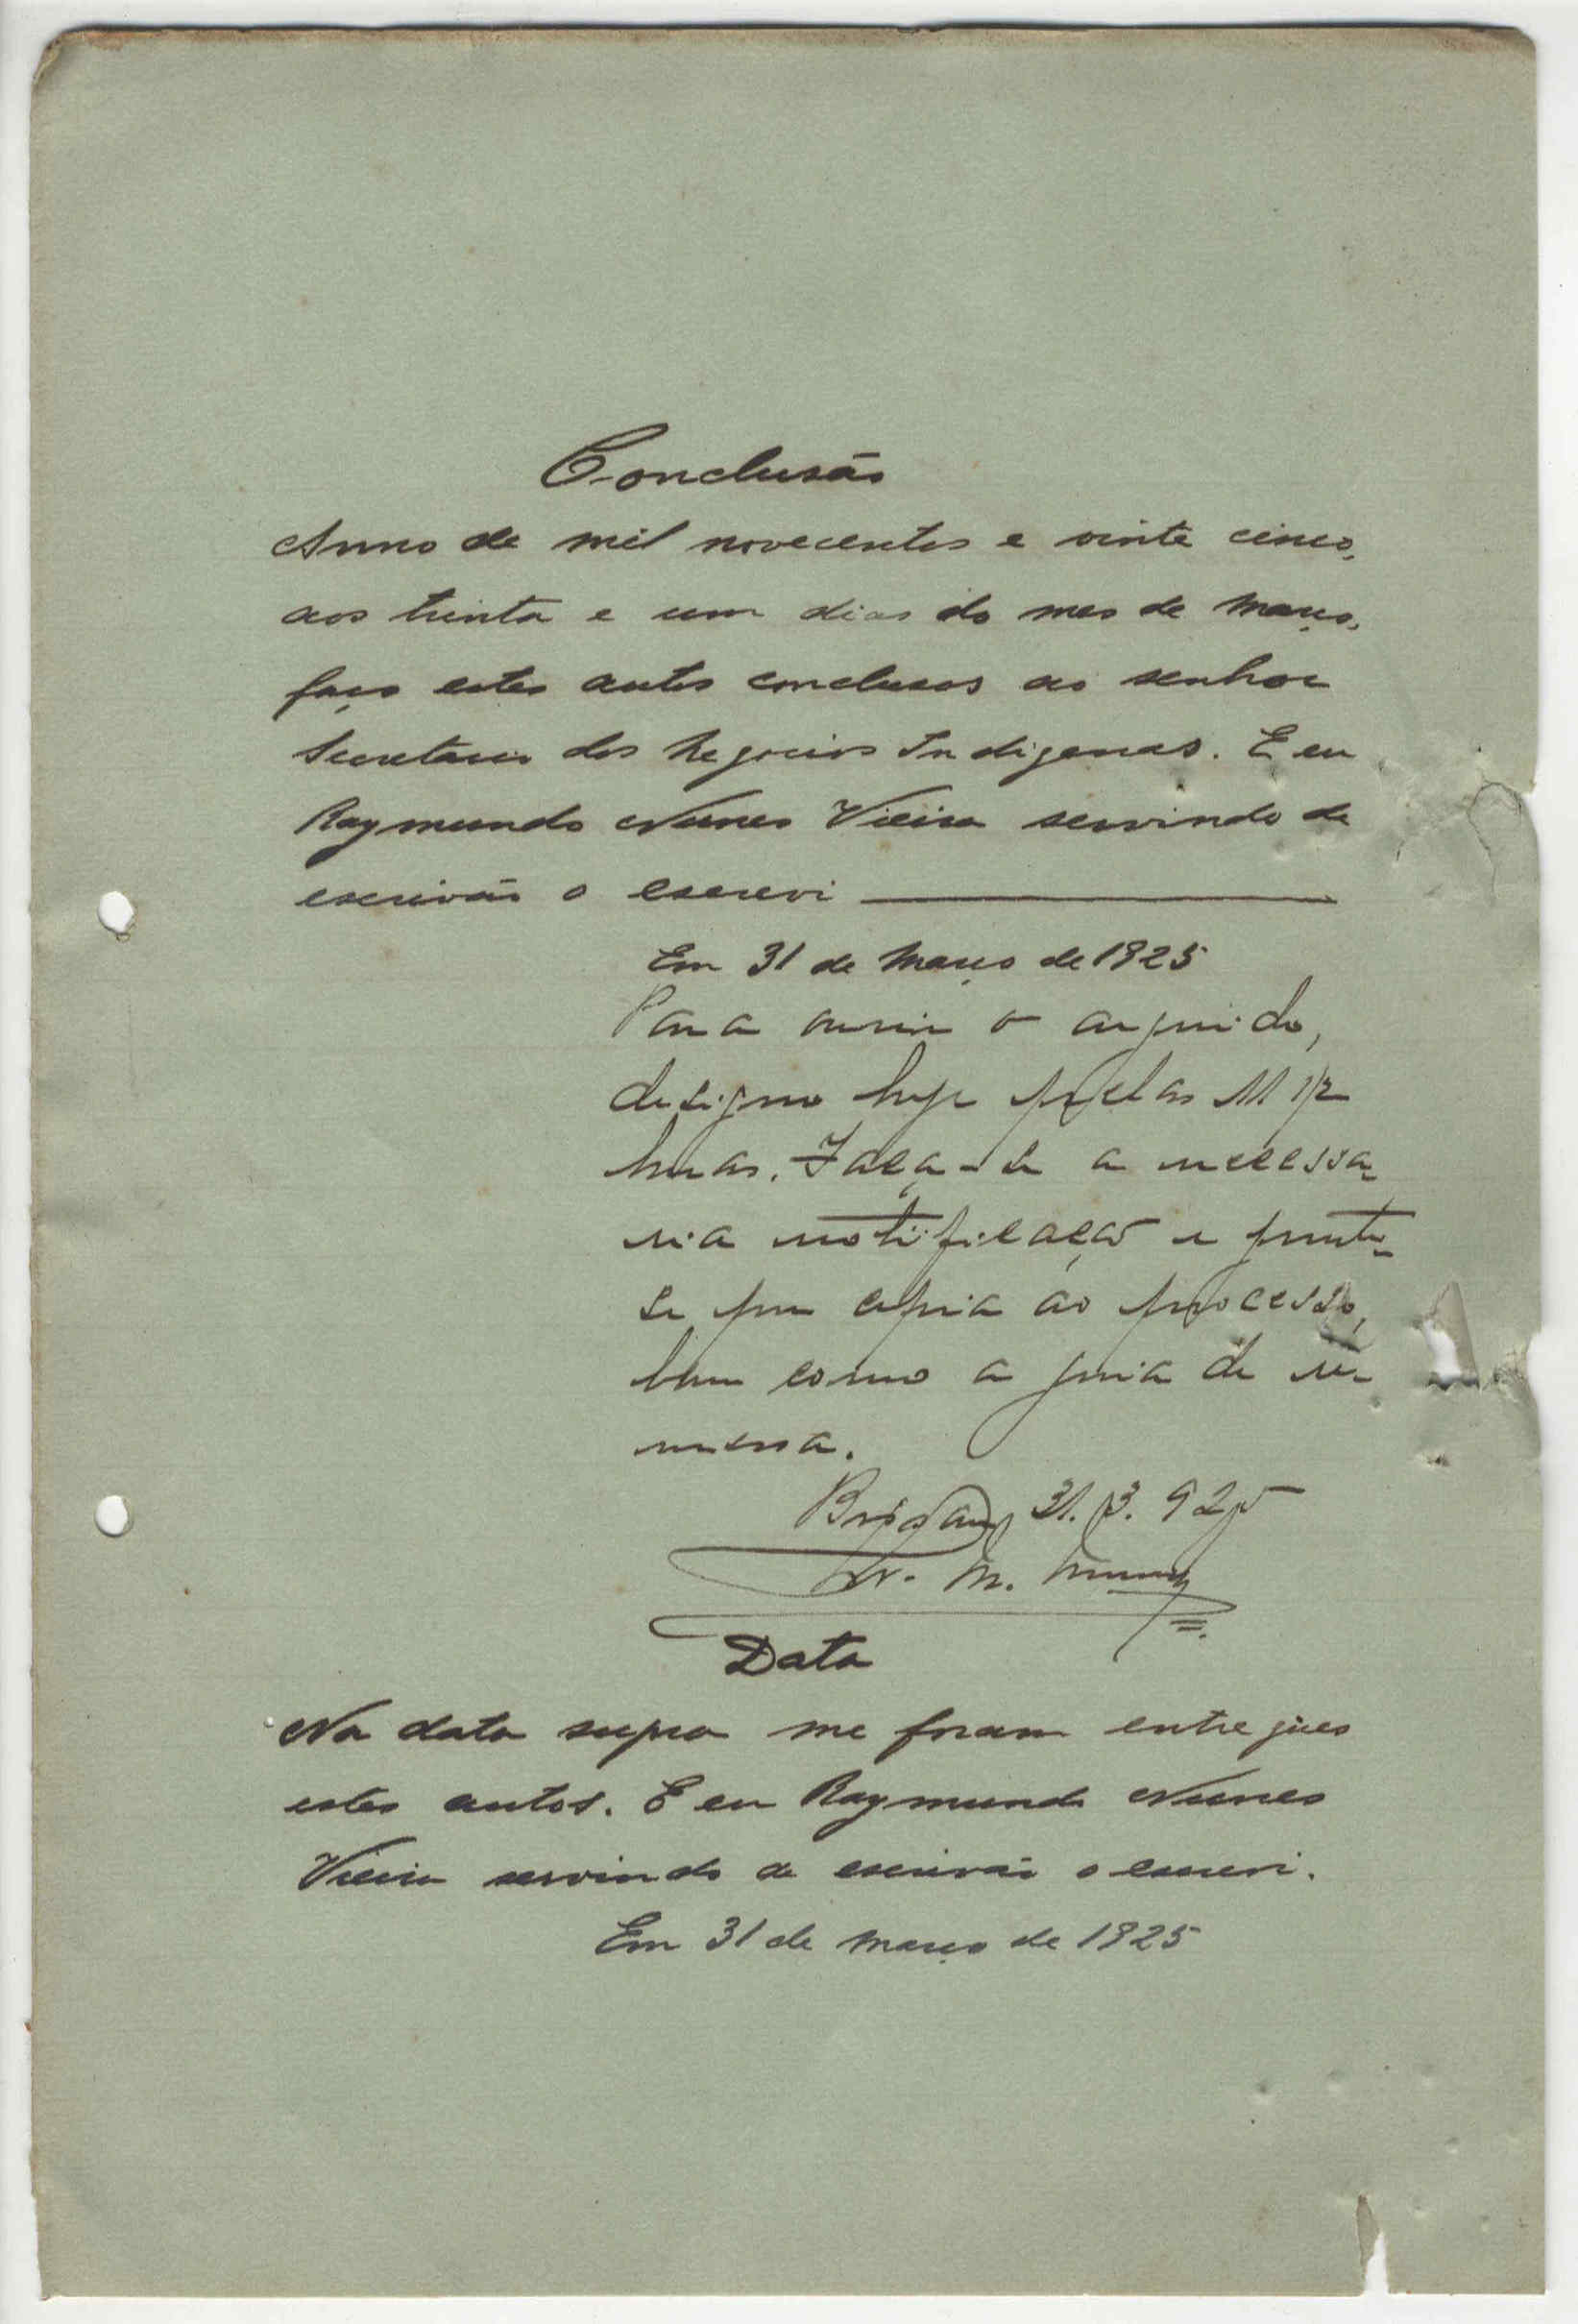 Conclusão
Anno de mil novecentos e vinte cinco,
aos trinta e um dias do mes de Março,
faço estes autos conclusos ao senhor
Secretario dos Negocios Indigenas. E eu
Raymundo Nunes Vieira servindo de
escrivão o escrevi
Em 31 de Março de 1925
Para ouvir o arguido,
designo hoje pelas 11 1/2
horas. Faça-se a necessa-
ria notificação e junte-
se por copia ao processo,
bem como a guia de re-
messa.
31.3.925
Data
Na data supra me foram entregues
estes autos. E eu Raymundo Nunes
Vieira servindo de escrivão o escrevi.
Em 31 de Março de 1925